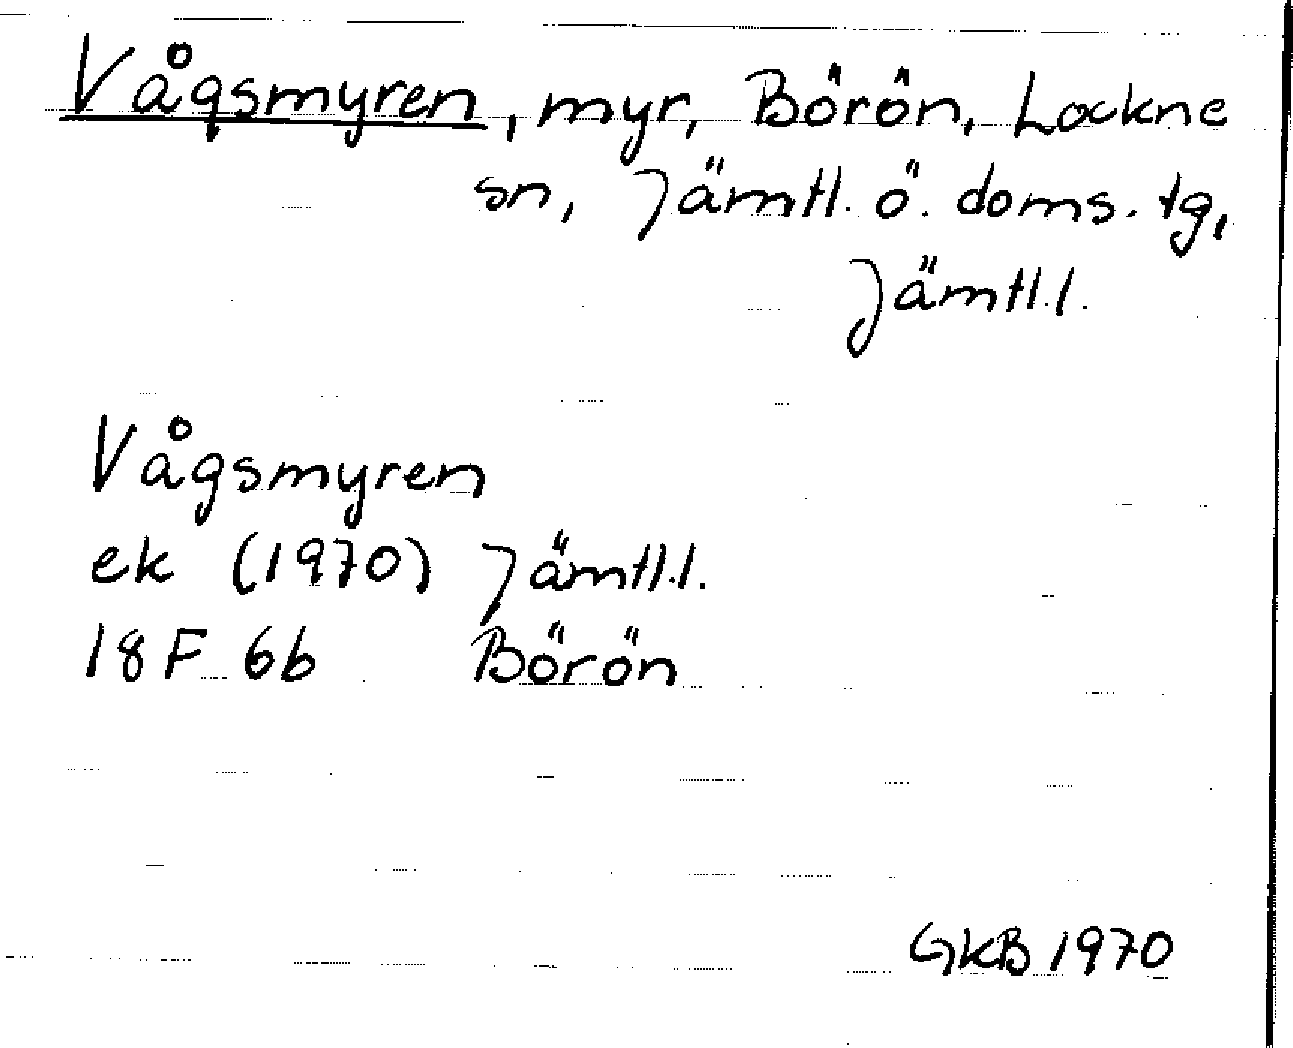 Vågsmyren, myr, Börön, Lockne
sn, Jämtl. ö. doms. tg,
Jämtl.l.
Vågsmyren
ek (1970) Jämtl.l.
18 F 6b Börön
GKB 1970